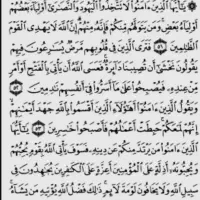 ۞ يَٰٓأَيُّهَا ٱلَّذِينَ ءَامَنُوا۟ لَا تَتَّخِذُوا۟ ٱلْيَهُودَ وَٱلنَّصَٰرَىٰٓ أَوْلِيَآءَ بَعْضُهُمْ
أَوْلِيَآءُ بَعْضٍ وَمَن يَتَوَلَّهُم مِّنكُمْ فَإِنَّهُۥ مِنْهُمْ إِنَّ ٱللَّهَ لَا يَهْدِى ٱلْقَوْمَ
ٱلظَّٰلِمِينَ ٥١ فَتَرَى ٱلَّذِينَ فِى قُلُوبِهِم مَّرَضٌ يُسَٰرِعُونَ فِيهِمْ
يَقُولُونَ نَخْشَىٰٓ أَن تُصِيبَنَا دَآئِرَةٌ فَعَسَى ٱللَّهُ أَن يَأْتِىَ بِٱلْفَتْحِ أَوْ أَمْرٍ
مِّنْ عِندِهِۦ فَيُصْبِحُوا۟ عَلَىٰ مَآ أَسَرُّوا۟ فِىٓ أَنفُسِهِمْ نَٰدِمِينَ ٥٢
وَيَقُولُ ٱلَّذِينَ ءَامَنُوٓا۟ أَهَٰٓؤُلَآءِ ٱلَّذِينَ أَقْسَمُوا۟ بِٱللَّهِ جَهْدَ أَيْمَٰنِهِمْ
إِنَّهُمْ لَمَعَكُمْ حَبِطَتْ أَعْمَٰلُهُمْ فَأَصْبَحُوا۟ خَٰسِرِينَ ٥٣ يَٰٓأَيُّهَا
ٱلَّذِينَ ءَامَنُوا۟ مَن يَرْتَدَّ مِنكُمْ عَن دِينِهِۦ فَسَوْفَ يَأْتِى ٱللَّهُ بِقَوْمٍ يُحِبُّهُمْ
وَيُحِبُّونَهُۥٓ أَذِلَّةٍ عَلَى ٱلْمُؤْمِنِينَ أَعِزَّةٍ عَلَى ٱلْكَٰفِرِينَ يُجَٰهِدُونَ فِى
سَبِيلِ ٱللَّهِ وَلَا يَخَافُونَ لَوْمَةَ لَآئِمٍ ذَٰلِكَ فَضْلُ ٱللَّهِ يُؤْتِيهِ مَن يَشَآءُ